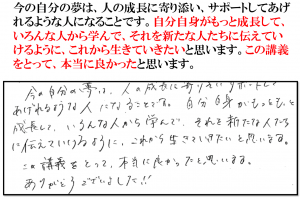 今の自分の夢は、人の成長に寄り添い、サポートしてあげ
れるような人になることです。自分自身がもっと成長して、
いろんな人から学んで、それを新たな人たちに伝えてい
けるように、これから生きていきたいと思います。この講義
をとって、本当に良かったと思います。
今の自分の夢は、人の成長に寄りそいサポートして
あげれるような人になることです。自分自身がもっともっと
成長して、いろんな人から学んで、それを新たな人たち
に伝えていけるように、これから生きていきたいと思います。
この講義をとって、本当に良かったと思います。
ありがとうございました!!